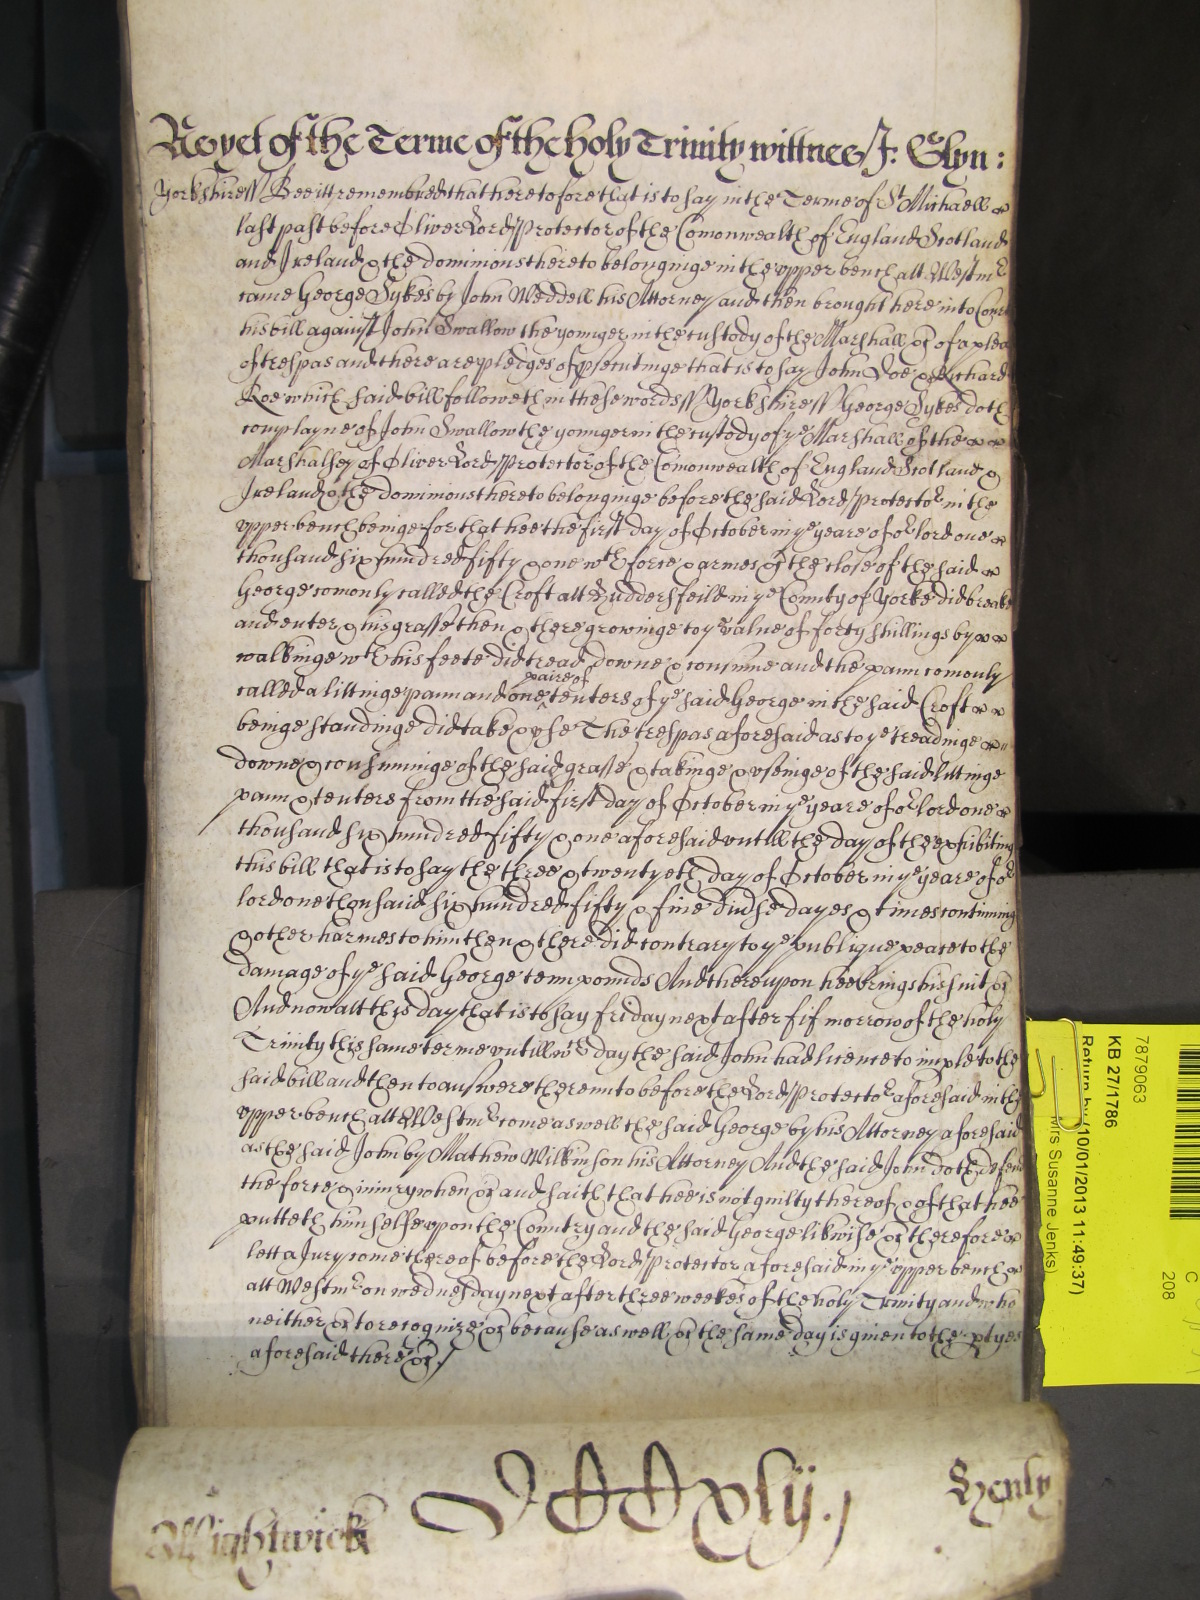 As yet of the Terme of the holy Trinity wittnes J: Glyn:
Yorkshire ss Bee itt remembred that heretofore that is to say in the Terme of St Michaell
last past before Oliver Lord Protector of the Comonwealth of England Scotland
and Ireland & the dominions thereto belonginge in the upper bench att Westmr
came George Sykes by John Weddell his Attorney and then brought here into Court
his bill against John Swallow the younger in the custody of the Marshall &c of a plea
of trespas and there are pledges of psecutinge that is to say John Doe & Richard
Roe which said bill followeth in these words ss Yorkshire ss George Sykes doth
complayne of John Swallow the younger in the custody of ye Marshall of the
Marshalsey of Oliver Lord Protector of the Comonwealth of England Scotland &
Ireland & the dominions thereto belonginge before the said Lord Protector in the
upper bench beinge for that hee the first day of October in ye yeare of or lord one
thousand six hundred fifty & one wth force & armes &c the close of the said
George comonly called the Croft att Huddersfeild in ye County of Yorke did breake
and enter & his grasse then & there growinge to ye value of forty shillings by
walkinge wth his feete did tread downe & consume and the pann comonly
called a littinge pann and one paire of tenters of ye said George in the said Croft
beinge standinge did take & use The trespas aforesaid as to ye treadinge
downe & consuminge of the said grasse & takinge & useinge of the said littinge
pann & tenters from the said first day of October in ye yeare of or lord one
thousand six hundred fifty & one aforesaid untill the day of the exhibiting
this bill that is to say the three & twentyeth day of October in ye yeare of or
lord one thousand six hundred fifty & five divse dayes & times continuing
& other harmes to him then & there did contrary to ye publique peace to the
damage of ye said George tenn pounds And thereupon hee brings his suit &c
And now att this day that is to say friday next after the morrow of the holy
Trinity this same terme untill wch day the said John had licence to imple to the
said bill and then to answere thereunto before the Lord Protector aforesaid in the
upper bench att Westmr come as well the said George by his Attorney aforesaid
as the said John by Mathew Wilkinson his Attorney And the said John doth defend
the force & iniury when &c and saith that hee is not guilty thereof & of that hee
putteth himselfe upon the Country and the said George likwise &c therefore
lett a Jury come thereof before the Lord Protector aforesaid in ye upper bench
att Westmr on wednesday next after three weekes of the holy Trinity and who
neither &c to recognize &c because as well &c the same day is given to the ptyes
aforesaid there &c
Wightwick
xlij.
Henly
7879063
KB 27/1786
Return by (10/01/2013 11:49:37)
Mrs Susanne Jenks)
C
208